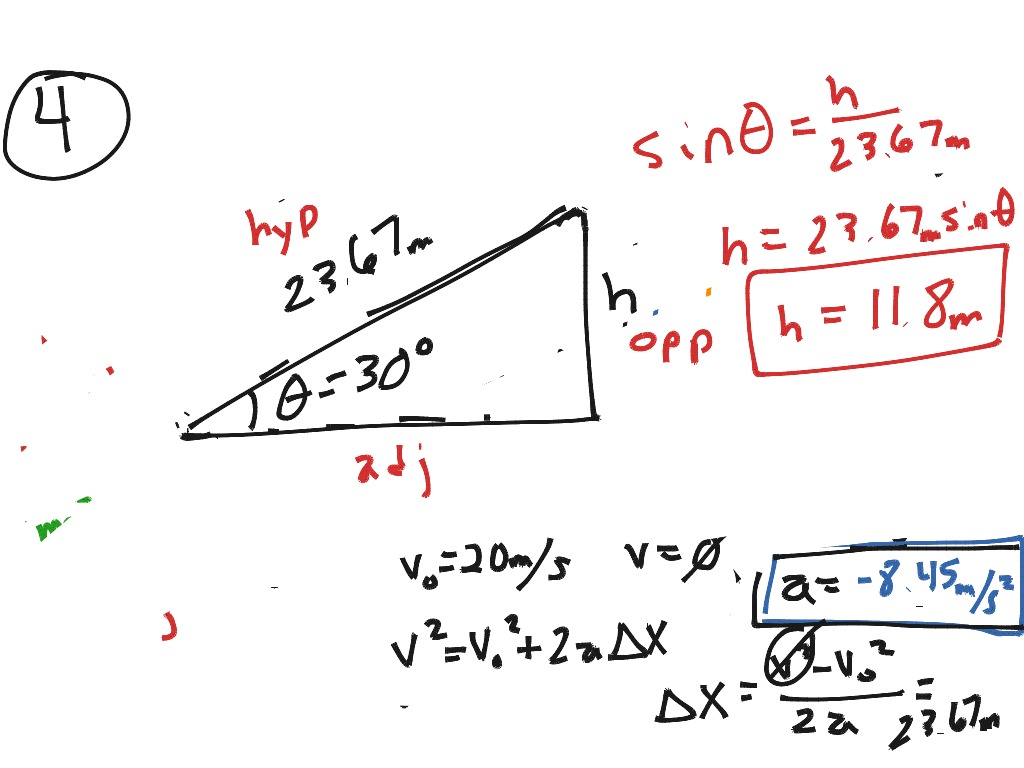 4
sinθ = h / 23.67m
hyp
23.67m
h = 23.67m sinθ
h
opp
h = 11.8m
θ = 30°
adj
v₀ = 20m/s v = ∅ a = -8.45m/s²
v² = v₀² + 2aΔX
ΔX = v² - v₀² / 2a = 23.67m